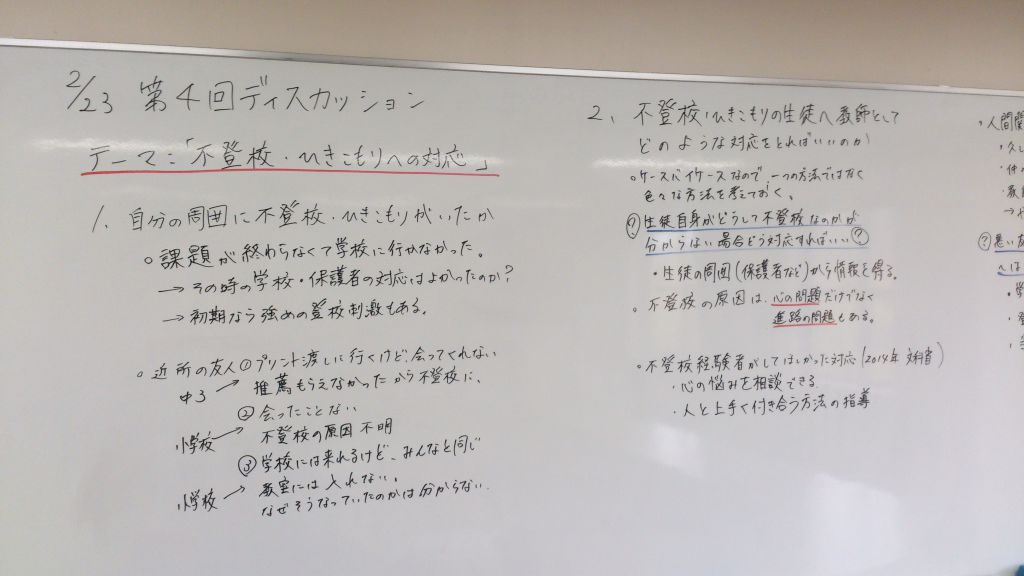 2/23 第4回ディスカッション
テーマ:「不登校・ひきこもりへの対応」
1. 自分の周囲に不登校・ひきこもりがいたか
○課題が終わらなくて学校に行かなかった。
→その時の学校・保護者の対応はよかったのか?
→初期なら強めの登校刺激もある。
○近所の友人①プリント渡しに行くけど、会ってくれない
中3→推薦もらえなかったから不登校に、
②会ったことない
小学校→不登校の原因 不明
③学校には来れるけど、みんなと同じ
小学校→教室には入れない。
なぜそうなっていたのかは分からない.
2、不登校・ひきこもりの生徒へ教師として
どのような対応をとればいいのか
○ケースバイケースなので、一つの方法ではなく
色々な方法を考えておく。
?生徒自身がどうして不登校なのかが
分からない場合どう対応すればいい?
・生徒の周囲(保護者など)から情報を得る。
○不登校の原因は、心の問題だけでなく
進路の問題もある。
○不登校経験者がしてほしかった対応(2014年 文科省)
・心の悩みを相談できる
・人と上手く付き合う方法の指導